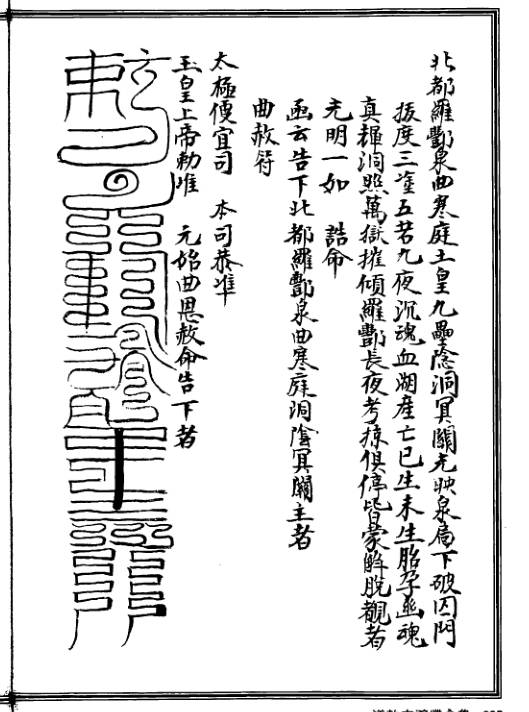 北都羅酆泉曲寒庭土皇九壘陰洞冥關光映泉扃下破囚門
拔度三塗五苦九夜沉魂血湖產亡已生未生胎孕幽魂
真輝洞照萬獄摧傾羅酆長夜考掠俱停皆蒙解脫覩者
光明一如 誥命
函云告下北都羅酆泉曲寒庭洞陰冥關主者
曲赦符
太極便宜司 本司恭准
玉皇上帝勅准 元始曲恩赦命告下者